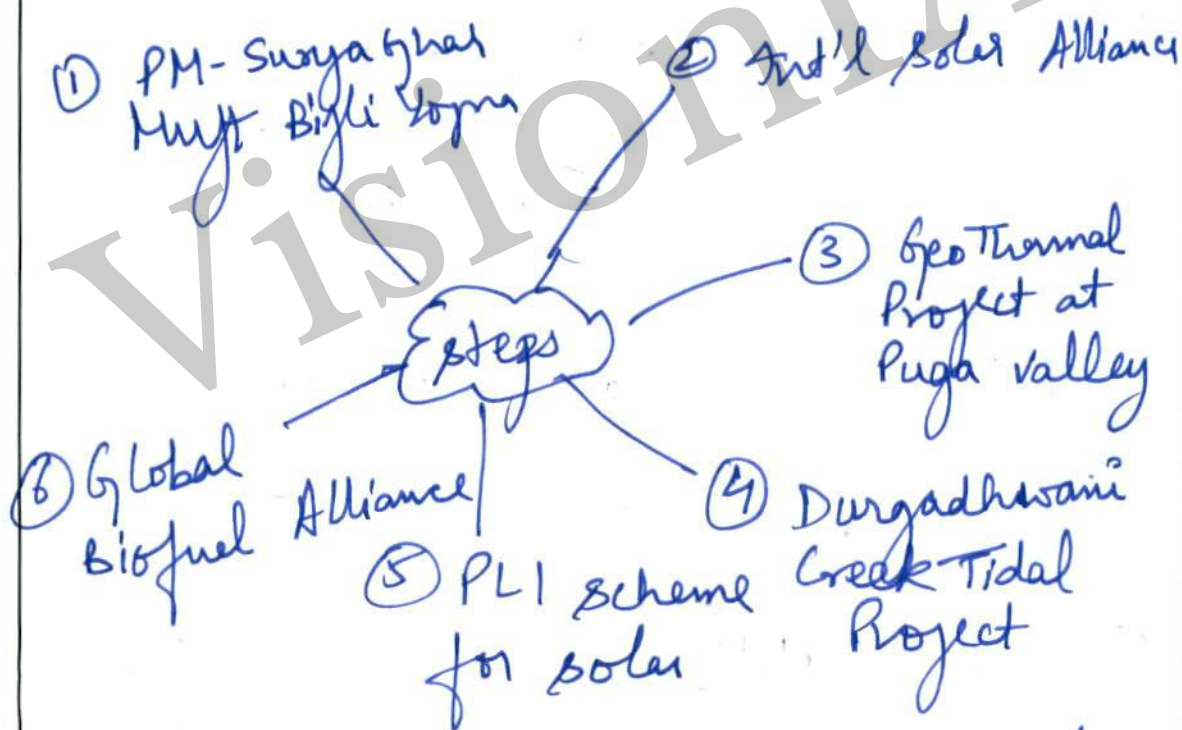 ① PM-Surya Ghar
Muft Bijli Yojna
② Int'l Solar Alliance
③ GeoThermal
Project at
Puga Valley
steps
④ Durgadhwani
Creek Tidal
Project
⑤ PLI scheme
for solar
⑥ Global
Biofuel Alliance
VisionIA